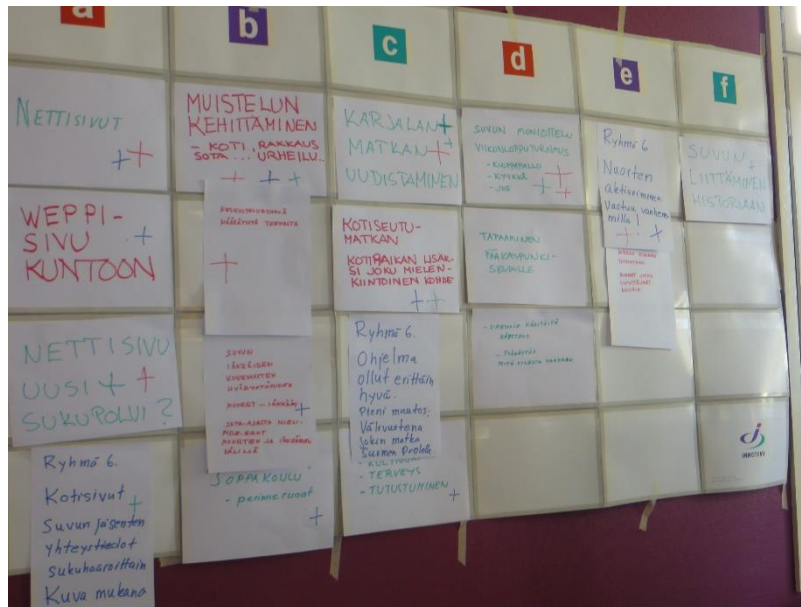 a
NETTISIVUT
WEPPI-
SIVU
KUNTOON
NETTISIVU
UUSI
SUKUPOLVI?
Ryhmä 6.
Kotisivut
Suvun jäsenten
yhteystiedot
sukuhaaroittain
Kuva mukana
b
MUISTELUN
KEHITTÄMINEN
- KOTI, RAKKAUS
SOTA... URHEILU..
SUVUN
IÄKKÄIDEN
NUORET - IÄKKÄÄT
VÄLILLÄ
SOPPAKOULU
- perinneruoat
c
KARJALAN
MATKAN
UUDISTAMINEN
KOTISEUTU-
MATKAN
KOTIPAIKAN LISÄK-
SI JOKU MIELEN-
KIINTOINEN KOHDE
Ryhmä 6.
Ohjelma
ollut erittäin
hyvä.
Pieni muutos:
Välivuotena
jokin matka
- TERVEYS
- TUTUSTUMINEN
d
SUVUN MONIOTTELU
VIIKONLOPPUTURNAUS
- KYYKKÄ
TAPAAMINEN
PÄÄKAUPUNKI-
SEUDULLE
e
Ryhmä 6
Nuorten
aktivoiminen
Vastuu vanhem
milla!
f
SUVUN
LIITTÄMINEN
HISTORIAAN
INNOTIIMI